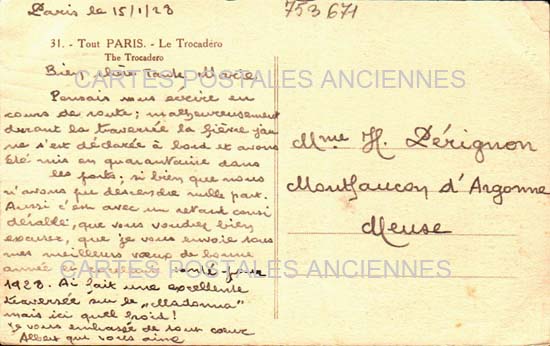 Paris le 15/1/28
753671
31. - Tout PARIS. - Le Trocadéro
The Trocadero
Bien chère Tante Marie
CARTES POSTALES ANCIENNES
Pensais vous écrire en
cours de route; malheureusement
durant la traversée la fièvre jau
ne s'est déclarée à bord et avons
été mis en quarantaine dans
les ports; si bien que nous
n'avons pu descendre nulle part.
Aussi c'est avec un retard consi
dérable, que vous voudrez bien
excuser, que je vous envoie tous
mes meilleurs vœux de bonne
année santé pour
1928. Ai fait une excellente
traversée sur le "Madonna"
mais ici quel froid!
Je vous embrasse de tout cœur
Albert qui vous aime
Mme H. Pérignon
Montfaucon d'Argonne
Meuse
CARTES POSTALES ANCIENNES